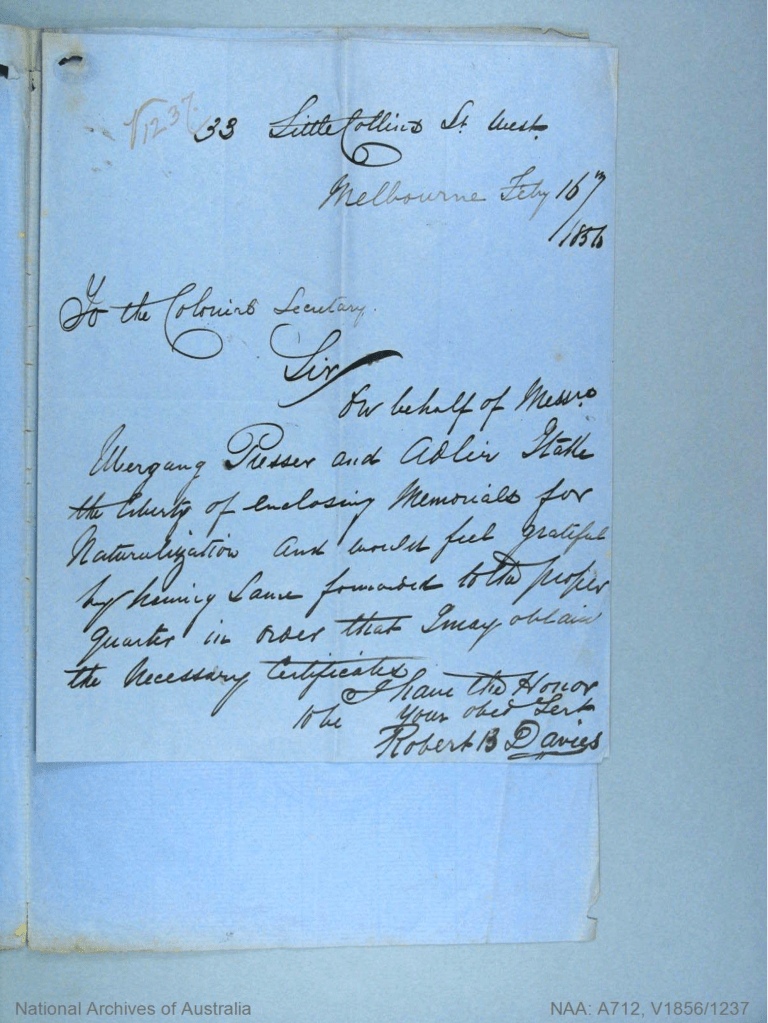 V1237
33 Little Collins St. West.
Melbourne Feby 16th
/1856
To the Colonial Secretary.
Sir
On behalf of Messrs
Ubergang Presser and Adler I take
the liberty of enclosing Memorials for
Naturalization and would feel grateful
by having same forwarded to the proper
quarter in order that I may obtain
the Necessary Certificates
I have the Honor
to be Your obed Sert
Robert B Davies
National Archives of Australia
NAA: A712, V1856/1237